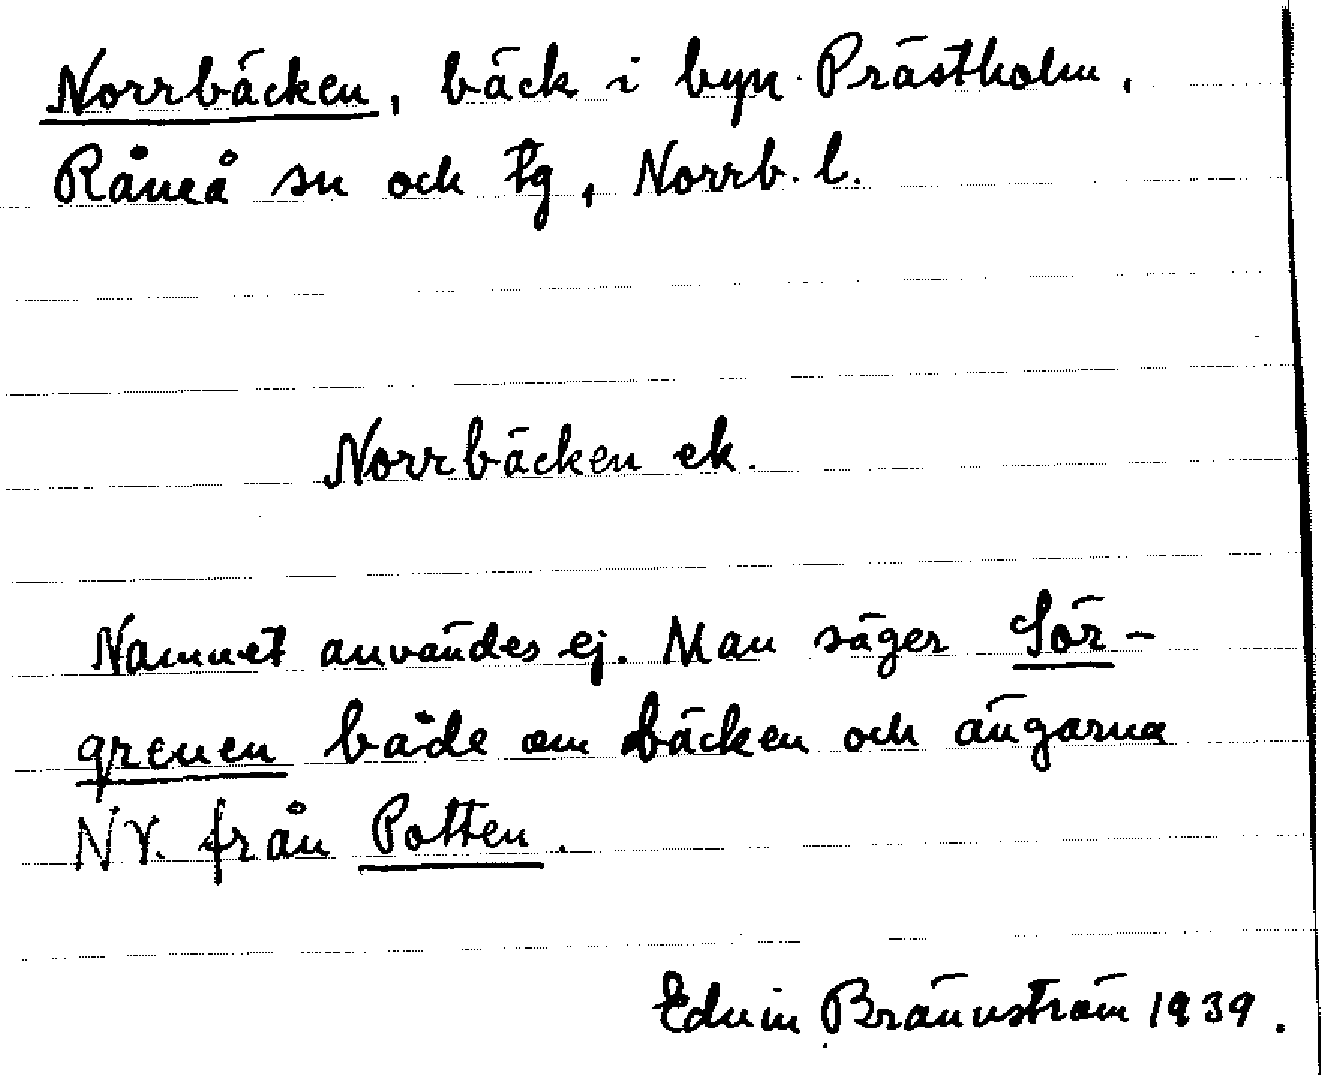 Norrbäcken, bäck i byn Prästholm,
Råneå sn och tg, Norrb. l.
Norrbäcken ek.
Namnet användes ej. Man säger Sör-
grenen både om bäcken och ängarna
NV. från Potten.
Edvin Brännström 1939.